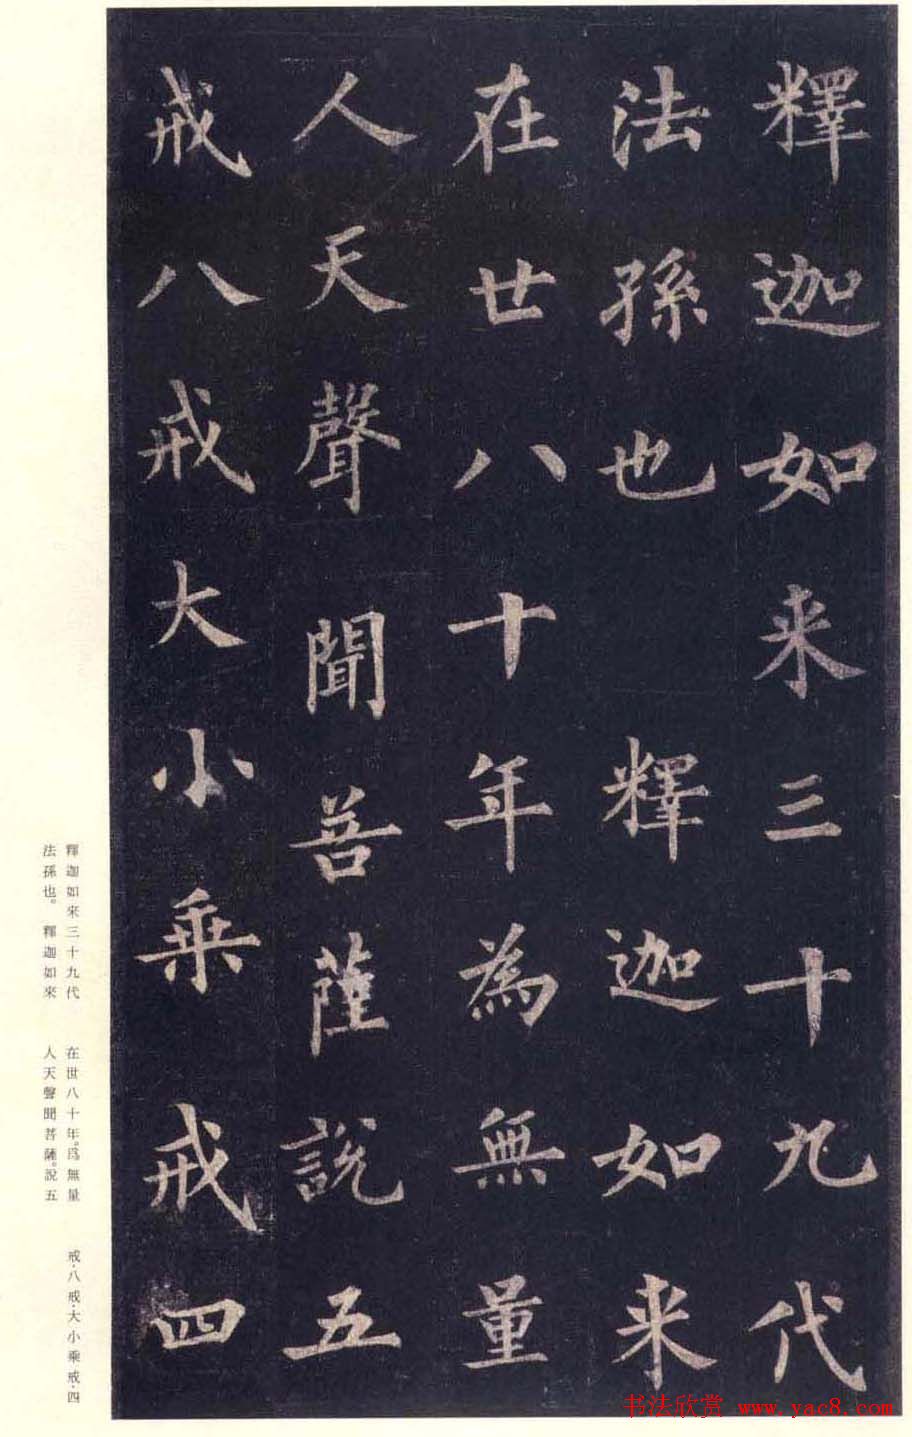 釋迦如来三十九代
法孫也　釋迦如来
在世八十年為無量
人天聲聞菩薩說五
戒八戒大小乘戒四
釋迦如來三十九代
法孫也。　釋迦如來
在世八十年。爲無量
人天聲聞菩薩。說五
戒·八戒·大小乘戒·四
书法欣赏 www.yac8.com